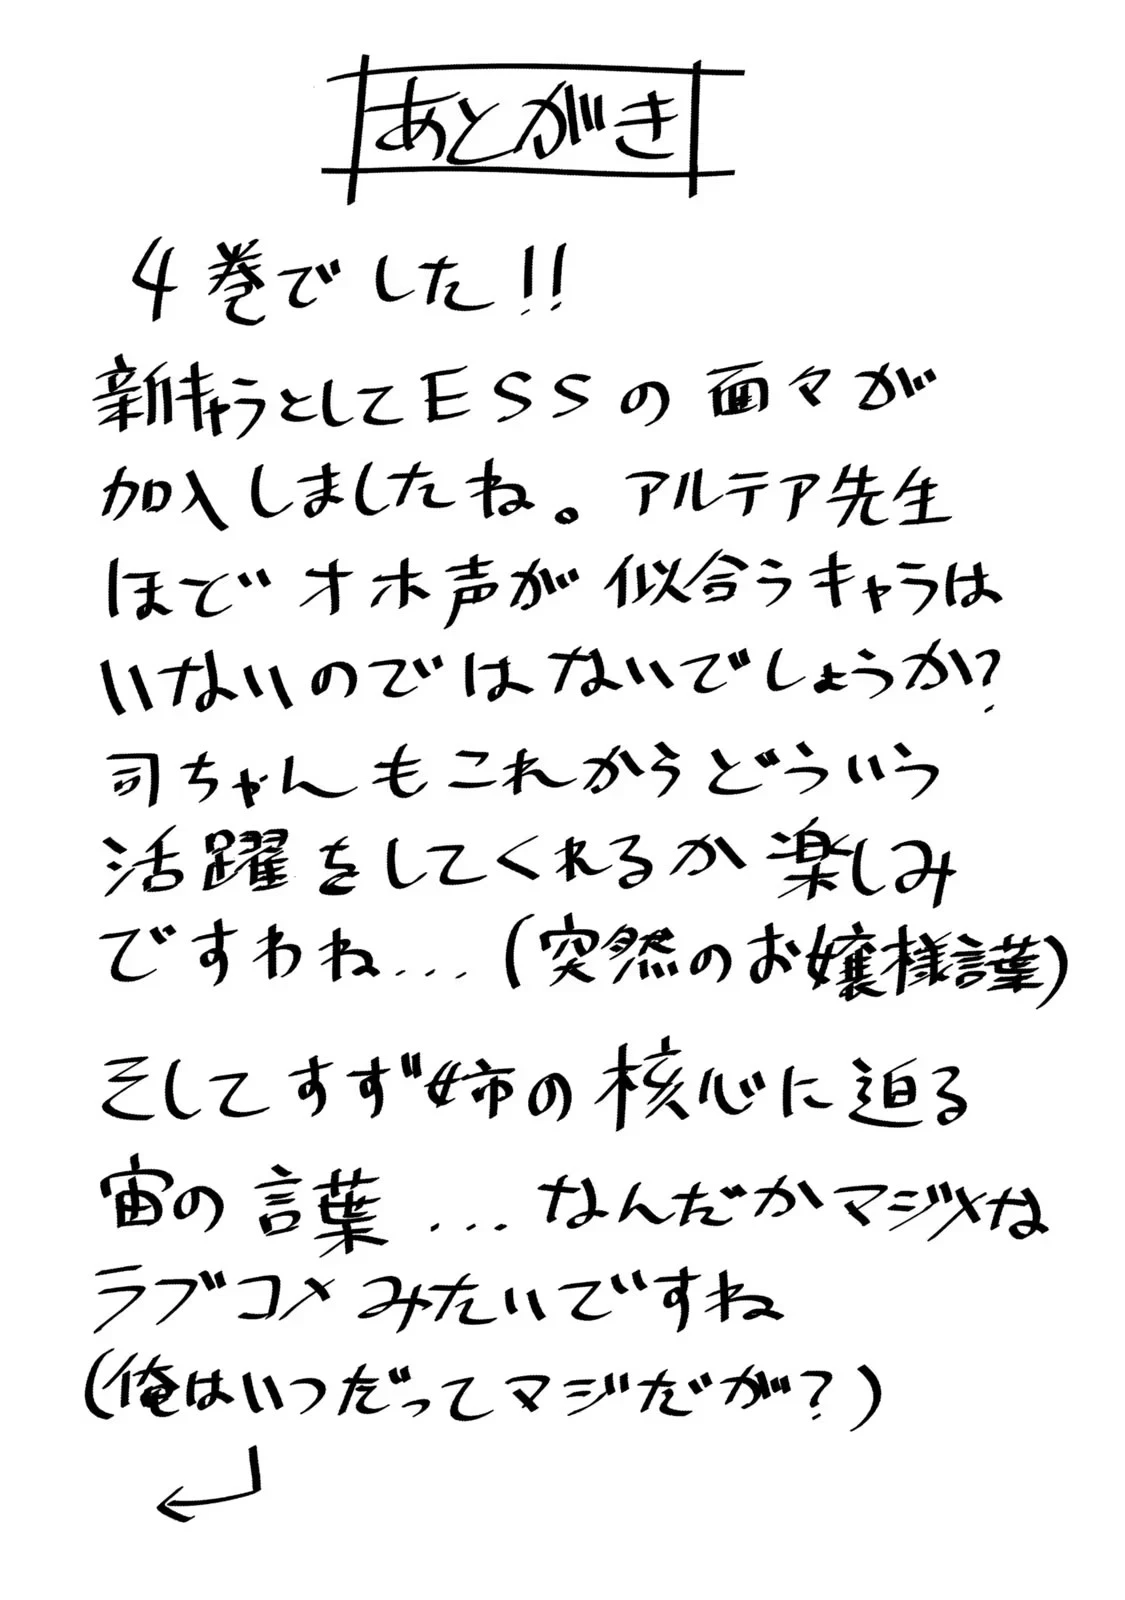 あとがき
4巻でした!!
新キャラとしてESSの面々が
加入しましたね。アルテア先生
ほどオホ声が似合うキャラは
いないのではないでしょうか?
司ちゃんもこれからどういう
活躍をしてくれるか楽しみ
ですわね...(突然のお嬢様言葉)
そしてすず姉の核心に迫る
宙の言葉...なんだかマジメな
ラブコメみたいですね
(俺はいつだってマジだが?)